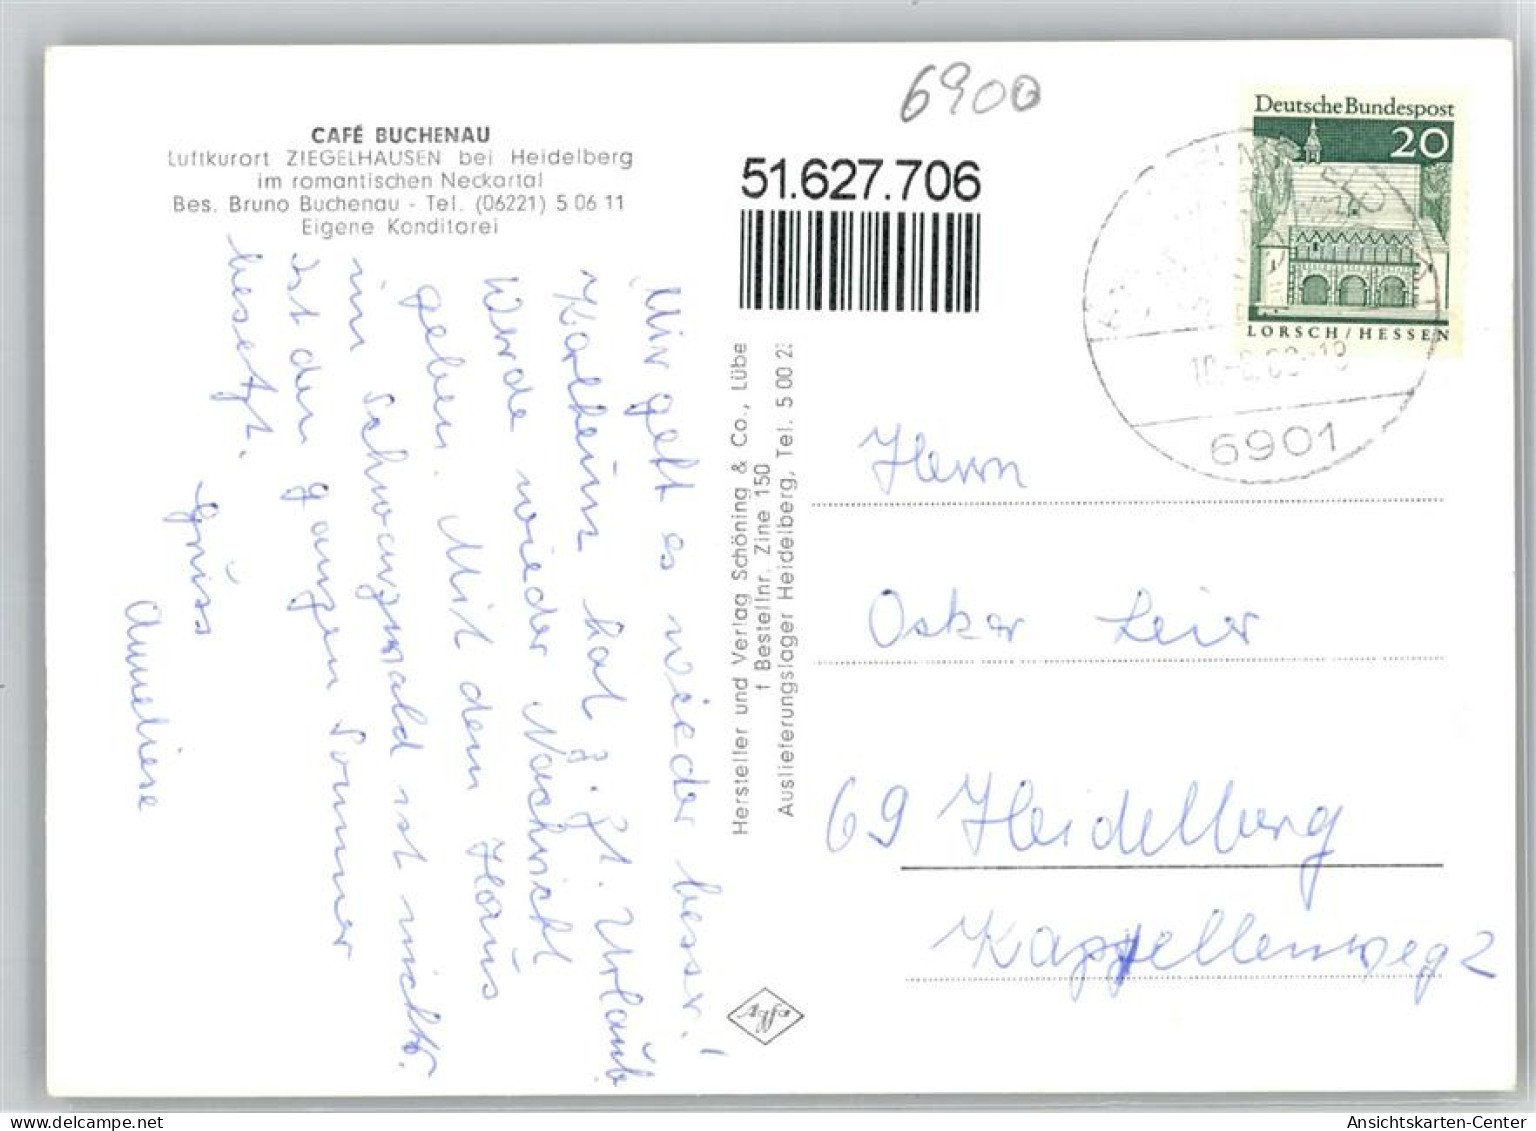 6900
CAFÉ BUCHENAU
Luftkurort ZIEGELHAUSEN bei Heidelberg
im romantischen Neckartal
Bes. Bruno Buchenau - Tel. (06221) 5 06 11
Eigene Konditorei
51.627.706
Deutsche Bundespost
20
LORSCH/HESSEN
6901
Mir geht es wieder besser!
Karlheinz hat z. Zt. Urlaub
Werde wieder Nachricht
geben. Mit dem Haus
im Schwarzwald ist nichts.
Ist den ganzen Sommer
besetzt.
Gruss
Anneliese
Hersteller und Verlag Schöning & Co., Lübe
f Bestellnr. Zine 150
Auslieferungslager Heidelberg, Tel. 5 00 2
Agfa
Herrn
Oskar Leier
69 Heidelberg
Kappellenweg 2
Ansichtskarten-Center